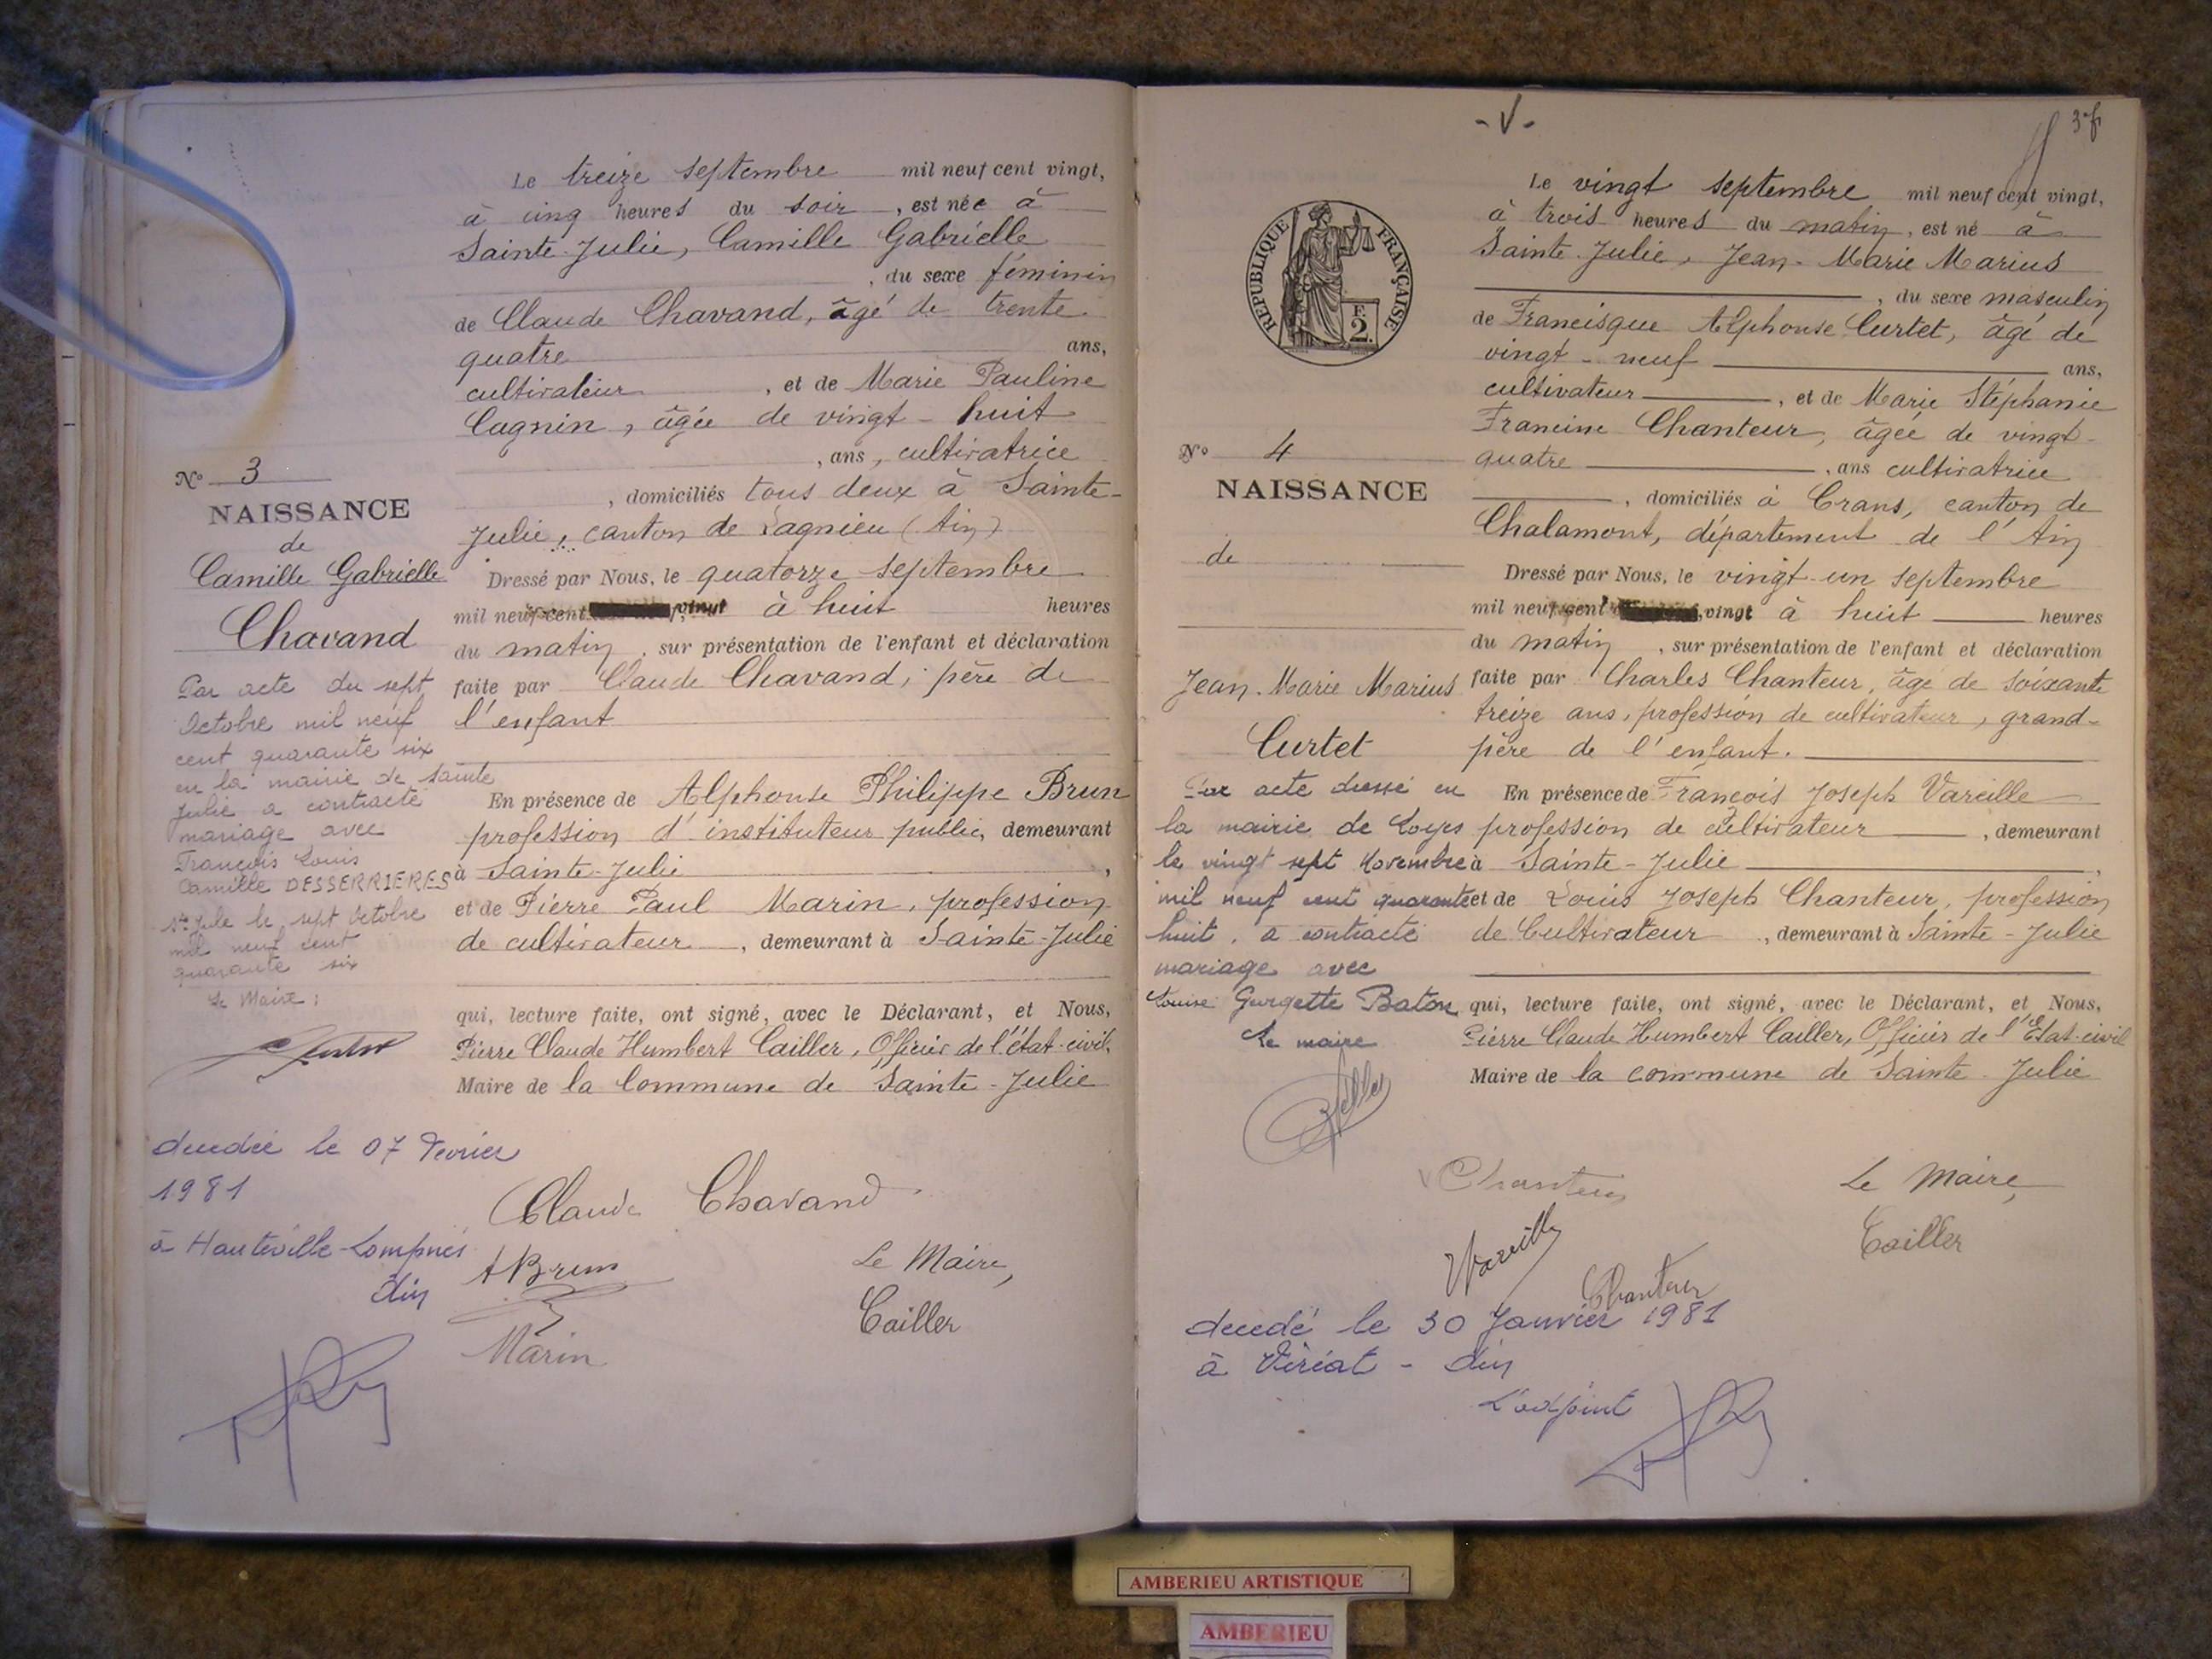 Le treize septembre mil neuf cent vingt,
à cinq heures du soir, est née à
Sainte-Julie, Camille Gabrielle
, du sexe féminin
de Claude Chavand, âgé de trente
quatre ans,
cultivateur, et de Marie Pauline
Cagnin, âgée de vingt-huit
, ans, cultivatrice
, domiciliés tous deux à Sainte-
Julie, canton de Lagnieu (Ain)
Dressé par Nous, le quatorze septembre
mil neuf cent vingt à huit heures
du matin, sur présentation de l'enfant et déclaration
faite par Claude Chavand, père de
l'enfant
En présence de Alphonse Philippe Brun
profession d'instituteur public, demeurant
à Sainte-Julie,
et de Pierre Paul Marin, profession
de cultivateur, demeurant à Sainte-Julie
qui, lecture faite, ont signé, avec le Déclarant, et Nous,
Pierre Claude Humbert Cailler, Officier de l'état-civil,
Maire de la Commune de Sainte-Julie
Claude Chavand
A Brun
Le Maire,
Cailler
Marin
N° 3
NAISSANCE
de
Camille Gabrielle
Chavand
Par acte du sept
Octobre mil neuf
cent quarante six
en la mairie de Sainte
Julie a contracté
mariage avec
François Louis
Camille DESSERRIERES
Ste Julie le sept Octobre
mil neuf cent
quarante six
Le Maire :
décédée le 07 Février
1981
à Hauteville-Lompnès
Ain
- V -
3 f
Le vingt septembre mil neuf cent vingt,
à trois heures du matin, est né à
Sainte-Julie, Jean-Marie Marius
, du sexe masculin
de Francisque Alphonse Curtet, âgé de
vingt-neuf ans,
cultivateur, et de Marie Stéphanie
Francine Chanteur, âgée de vingt-
quatre, ans cultivatrice
, domiciliés à Crans, canton de
Chalamont, département de l'Ain
Dressé par Nous, le vingt-un septembre
mil neuf cent vingt à huit heures
du matin, sur présentation de l'enfant et déclaration
faite par Charles Chanteur, âgé de soixante
treize ans, profession de cultivateur, grand-
père de l'enfant.
En présence de François Joseph Vareille
profession de cultivateur, demeurant
à Sainte-Julie,
et de Louis Joseph Chanteur, profession
de Cultivateur, demeurant à Sainte-Julie
qui, lecture faite, ont signé, avec le Déclarant, et Nous,
Pierre Claude Humbert Cailler, Officier de l'Etat-civil
Maire de la commune de Sainte-Julie
Chanteur
Le Maire,
Vareille
Cailler
Chanteur
RÉPUBLIQUE FRANÇAISE
F.
2.
N° 4
NAISSANCE
de
Jean-Marie Marius
Curtet
Par acte dressé en
la mairie de Loyes
le vingt sept Novembre
mil neuf cent quarante
huit, a contracté
mariage avec
Louise Georgette Baton
Le maire
décédé le 30 Janvier 1981
à Viriat - Ain
L'adjoint
AMBERIEU ARTISTIQUE
AMBERIEU